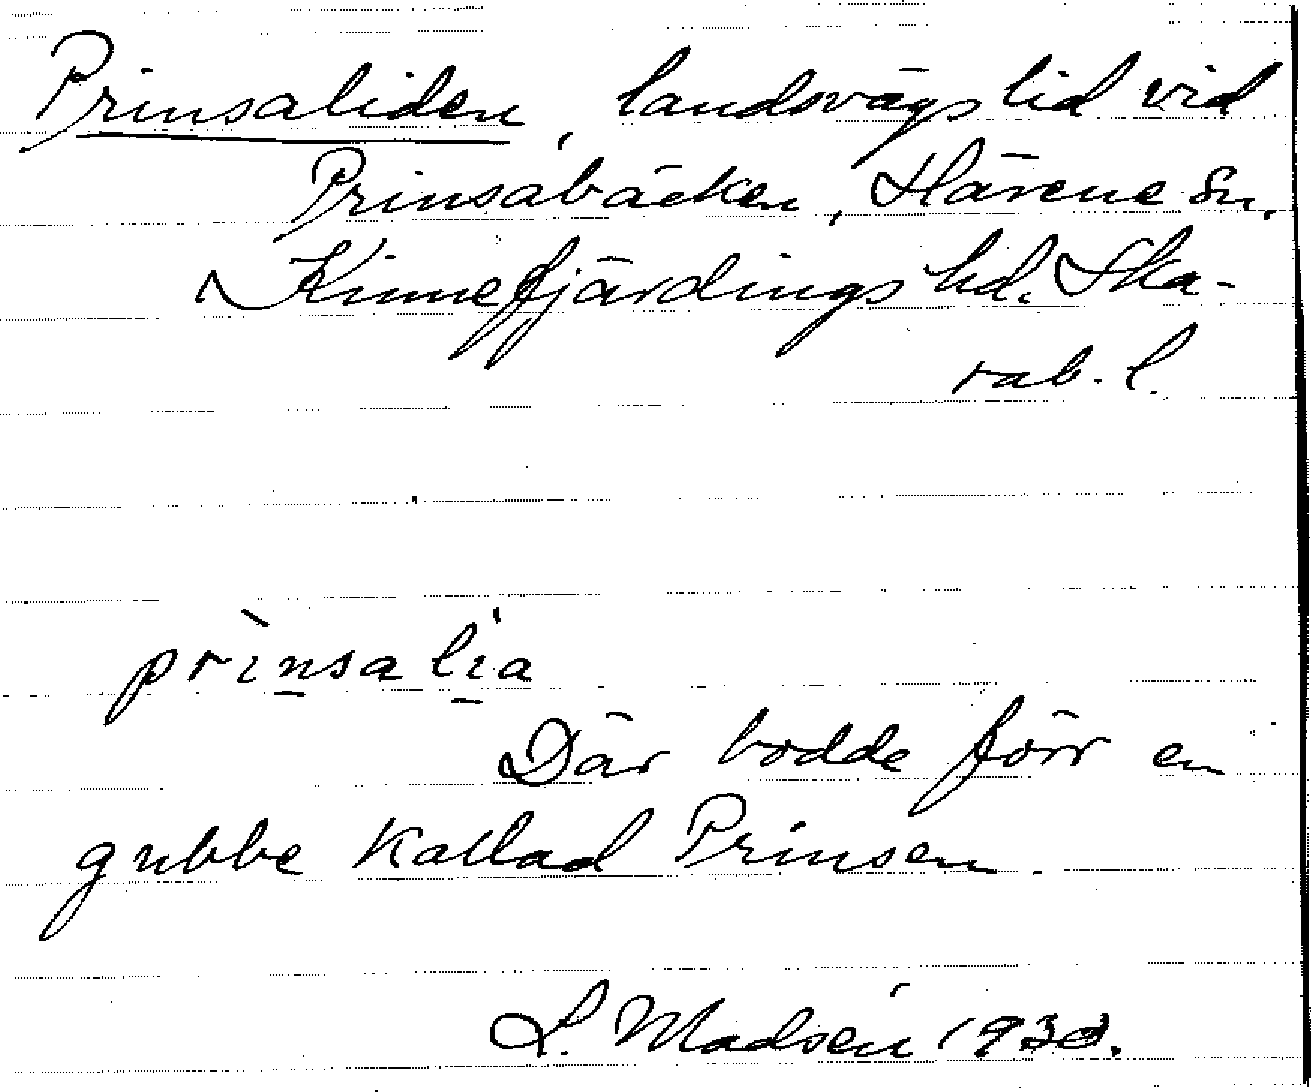 Prinsaliden, landsvägslid vid
Prinsabäcken, Härene sn,
Kinnefjärdings hd. Ska-
rab. l.
prìnsalía
Där bodde förr en
gubbe kallad Prinsen.
L. Madsén 1933.